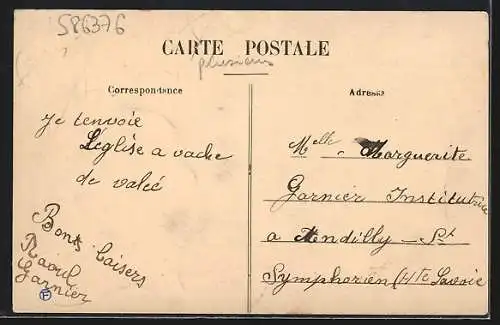 586376
CARTE POSTALE
plusieurs
Correspondance
Adresse
Je tenvoie
L'église a vache
de valeé
Bons baisers
Raoul
Garnier
Melle Marguerite
Garnier Institutrice
a Andilly - St
Symphorien (Hte Savoie
F